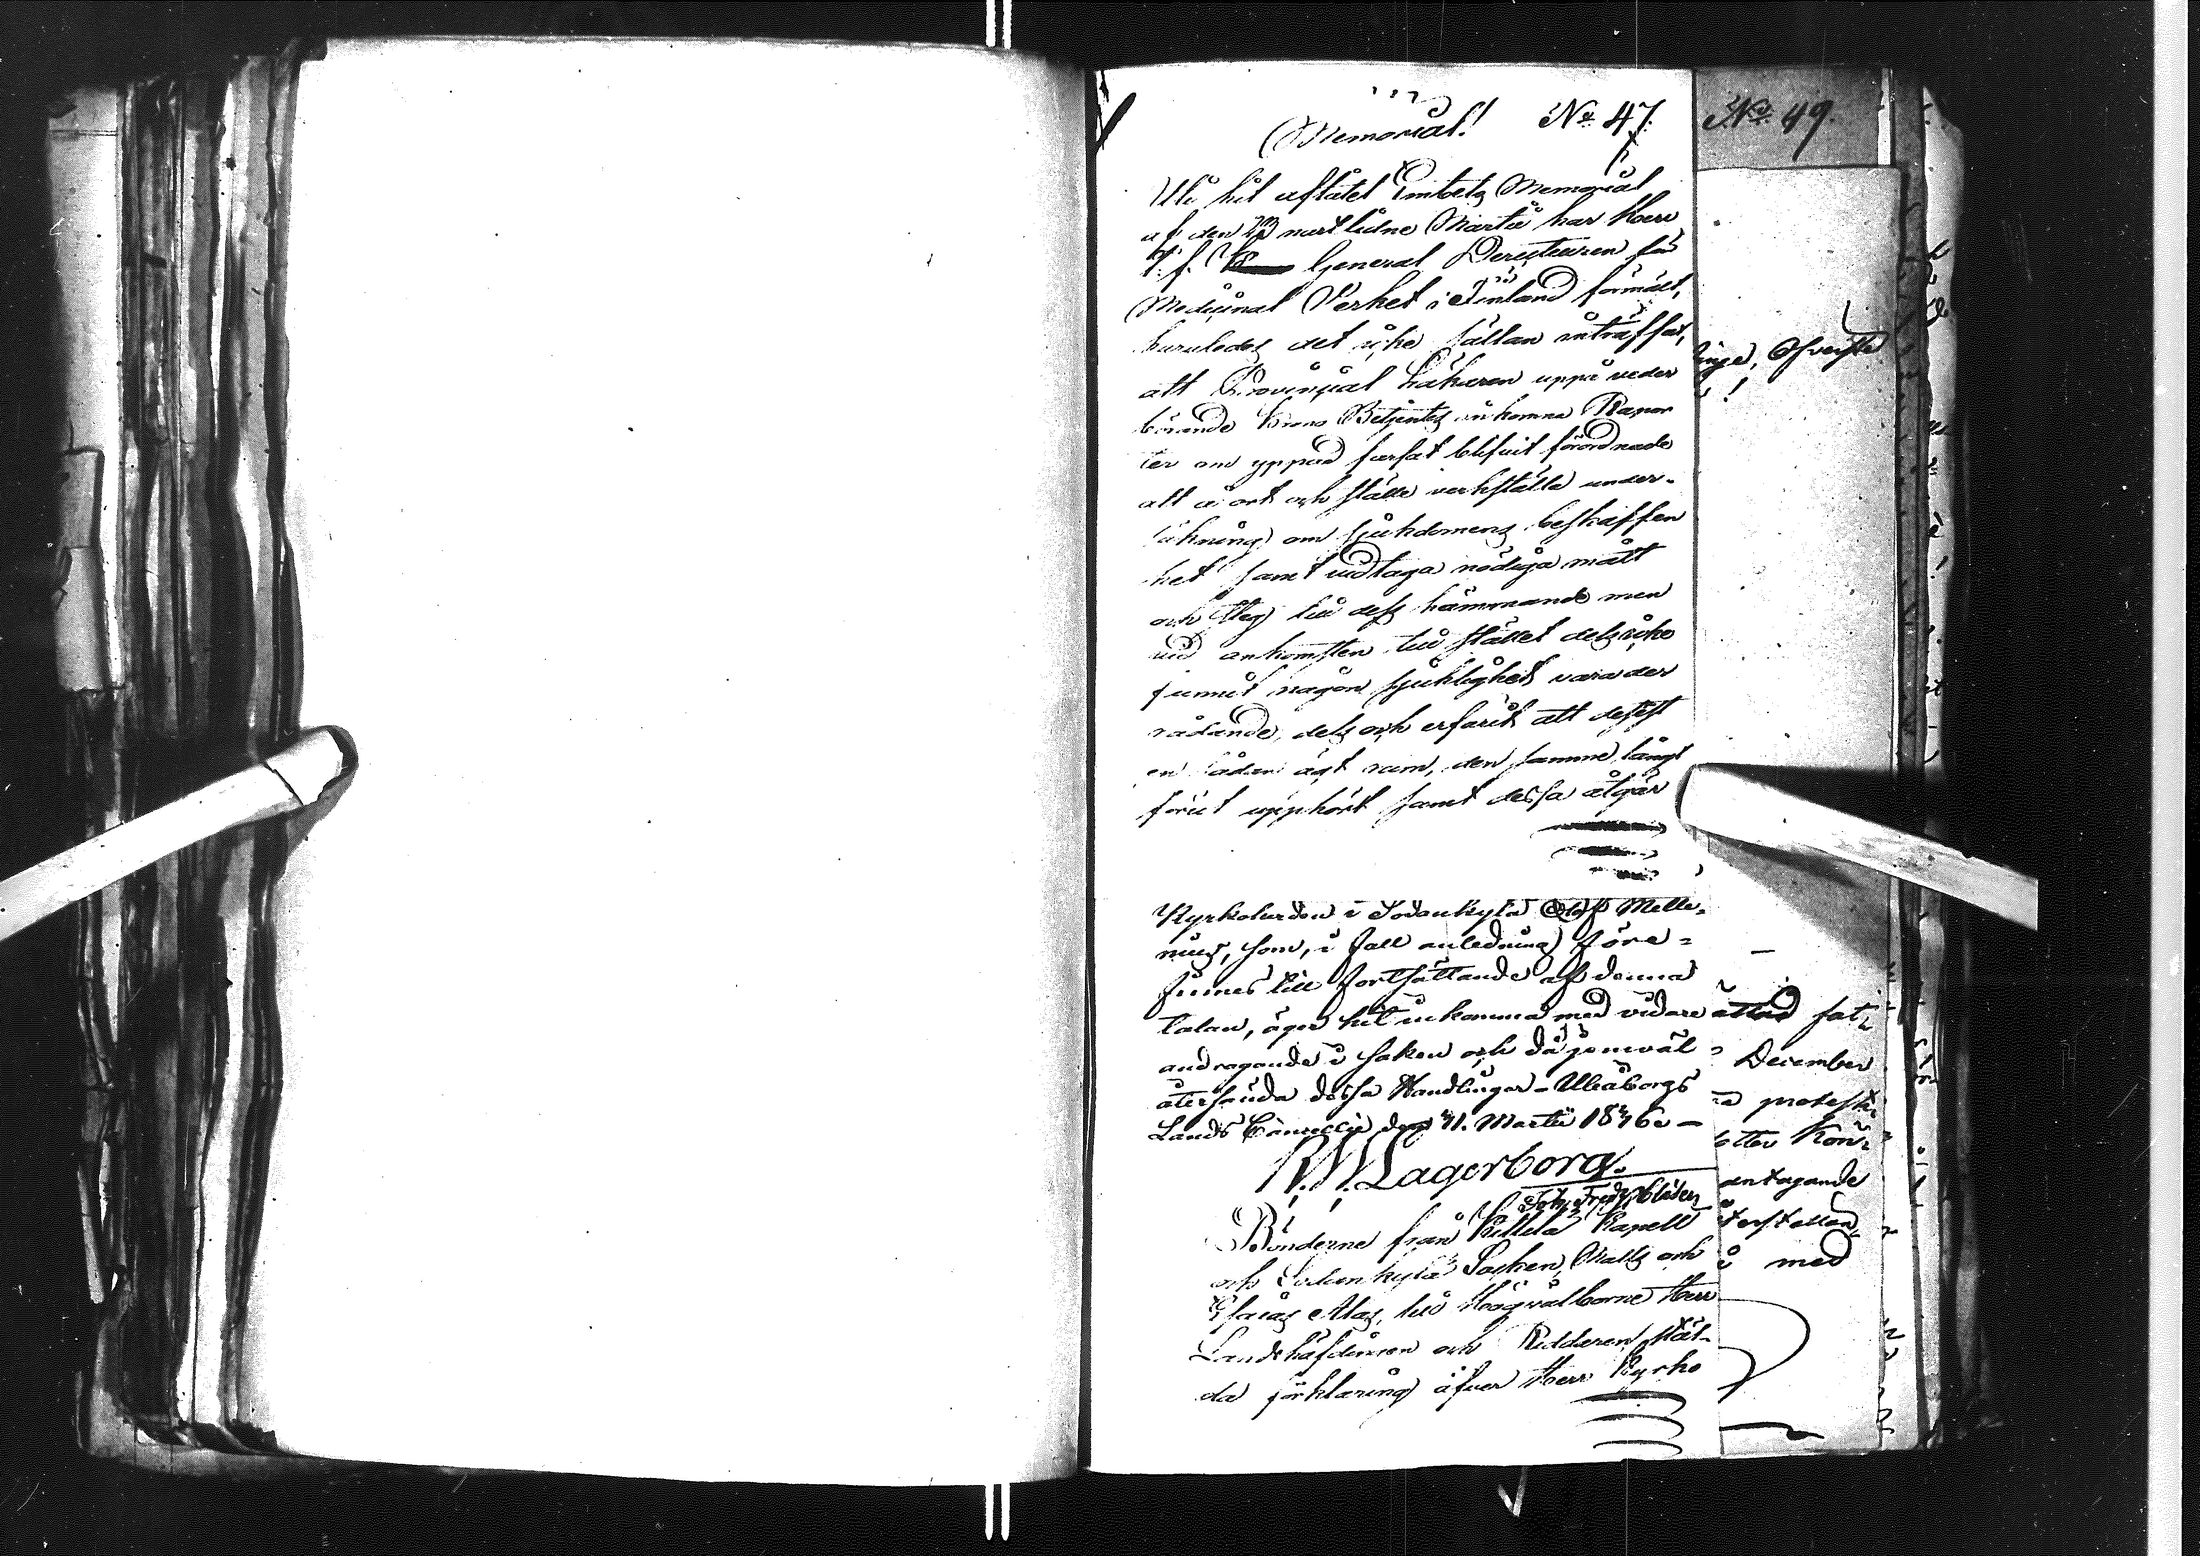 Memorial! No 47.
Uti hit aflåtet Embets Memorial
af den 23 nästlidne Martii har Herr
T. f. General Directeuren för
Medicinal Verket i Finland förmält,
huruledes det icke sällan inträffat,
att Provincial Läkaren uppå veder
börande Krono Betjentes inkomne Rappor
ter om yppad farsot blifvit förordnade
att å ort och ställe verkställa under-
sökning om sjukdomens beskaffen
het samt vidtaga nödiga mått
och steg till dess hämmande men
vid ankomsten till stället dels icke
funnit någon sjuklighet vara der
rådande, dels och erfarit att des est
en sådan ägt rum, den samme långt
förut upphört samt dessa åtgär
Kyrkoherden i Sodankylä Olof Melle-
nius, som, i fall anledning före-
finnes till fortsättande af denna
talan, äger hit inkomma med vidare
andragande i saken och då jemväl
återsända dessa Handlingar. Uleåborgs
Lands Cancellie den 31. Martii 1836.
R. W. Lagerborg.
Joh. Fredr.
Bönderne från Kittilä Kapell
och Sodankylä Socken, Matts och
Esaias Alas, till Högvälborne Herr
Landshöfdingen och Riddaren stäl-
da förklaring öfver Herr Kyrko
No 49.
inge, Öfverste
!
fat-
December
protest
Kon-
antagande
terställan
i med